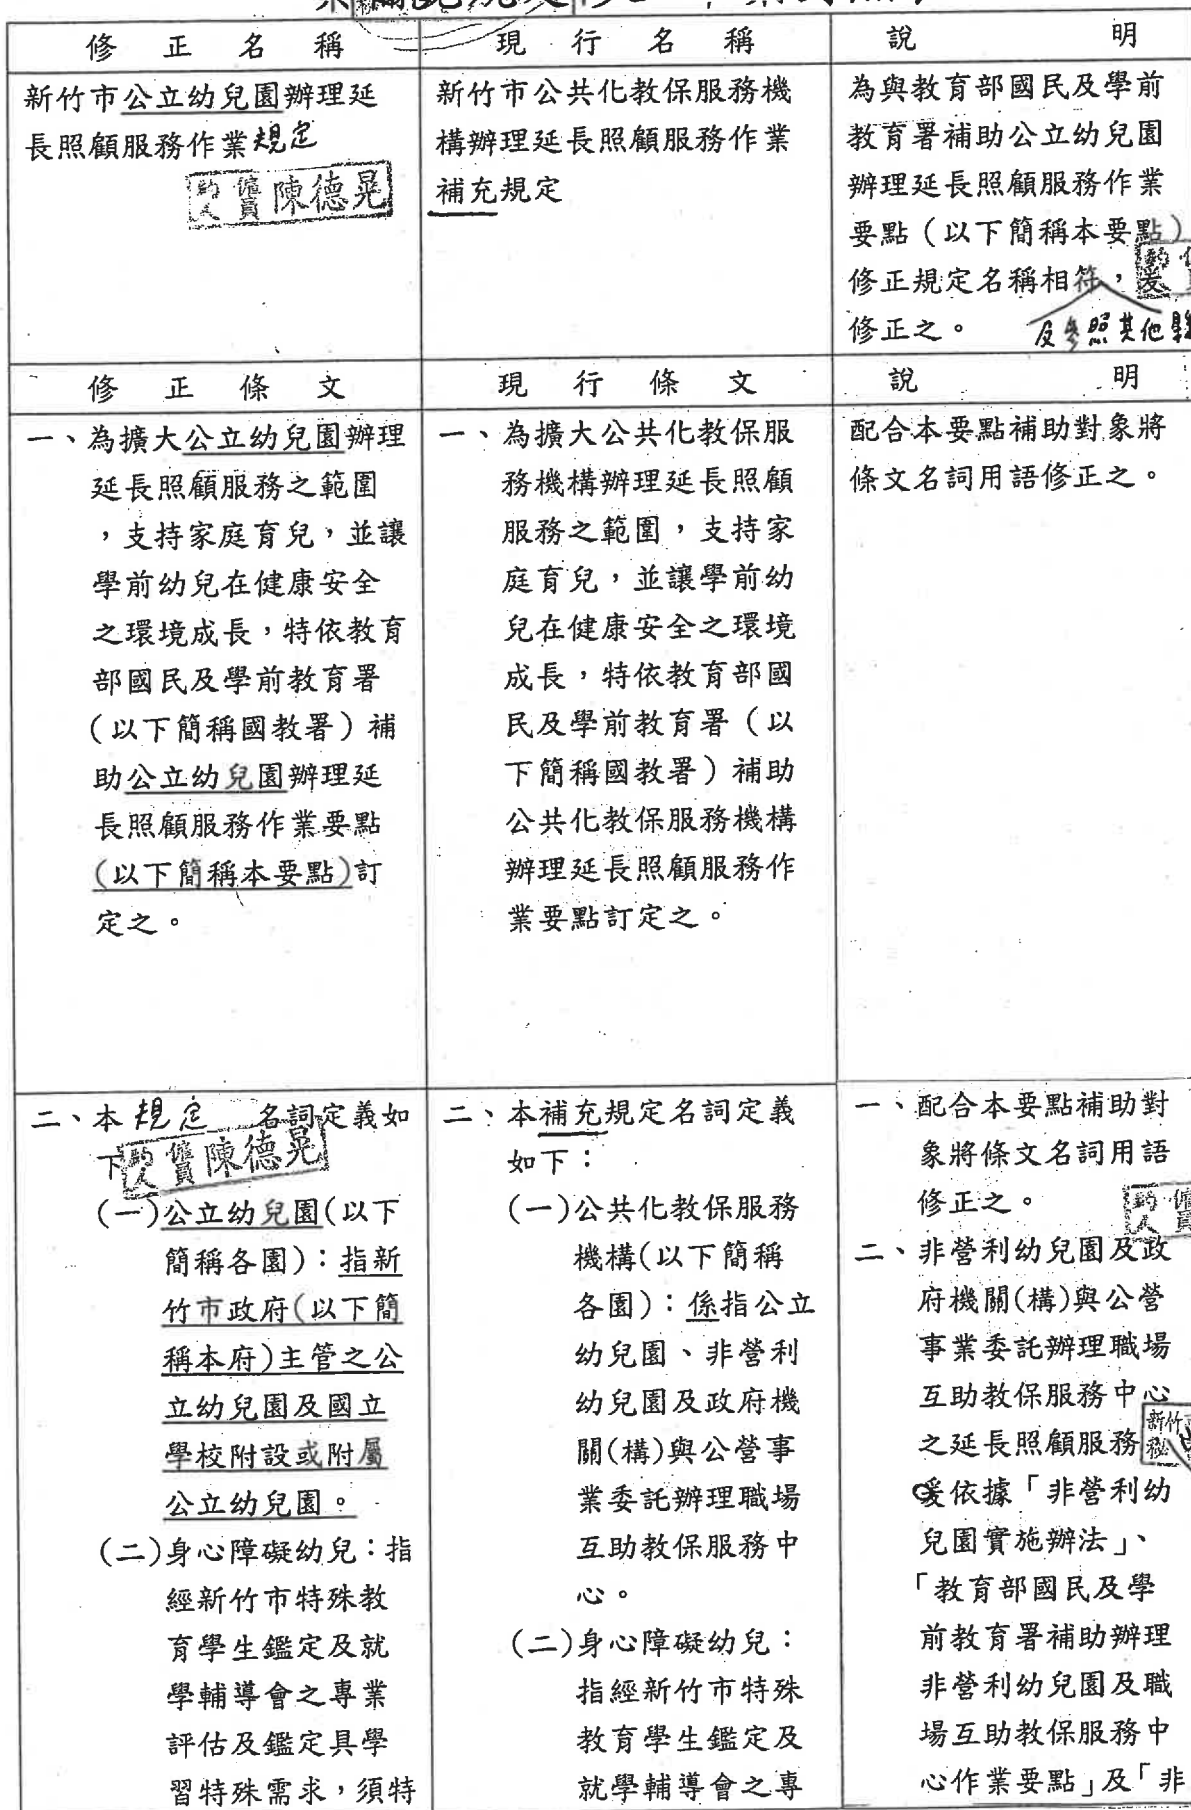 修正名稱
新竹市公立幼兒園辦理延
長照顧服務作業規定
約僱人員 陳德晃
現行名稱
新竹市公共化教保服務機
構辦理延長照顧服務作業
補充規定
說明
為與教育部國民及學前
教育署補助公立幼兒園
辦理延長照顧服務作業
要點（以下簡稱本要點）
修正規定名稱相符，爰
及參照其他縣
修正之。
修正條文
一、為擴大公立幼兒園辦理
延長照顧服務之範圍
，支持家庭育兒，並讓
學前幼兒在健康安全
之環境成長，特依教育
部國民及學前教育署
（以下簡稱國教署）補
助公立幼兒園辦理延
長照顧服務作業要點
(以下簡稱本要點)訂
定之。
現行條文
一、為擴大公共化教保服
務機構辦理延長照顧
服務之範圍，支持家
庭育兒，並讓學前幼
兒在健康安全之環境
成長，特依教育部國
民及學前教育署（以
下簡稱國教署）補助
公共化教保服務機構
辦理延長照顧服務作
業要點訂定之。
說明
配合本要點補助對象將
條文名詞用語修正之。
二、本規定 名詞定義如
下
約僱人員 陳德晃
(一)公立幼兒園(以下
簡稱各園)：指新
竹市政府(以下簡
稱本府)主管之公
立幼兒園及國立
學校附設或附屬
公立幼兒園。
(二)身心障礙幼兒：指
經新竹市特殊教
育學生鑑定及就
學輔導會之專業
評估及鑑定具學
習特殊需求，須特
二、本補充規定名詞定義
如下：
(一)公共化教保服務
機構(以下簡稱
各園)：係指公立
幼兒園、非營利
幼兒園及政府機
關(構)與公營事
業委託辦理職場
互助教保服務中
心。
(二)身心障礙幼兒：
指經新竹市特殊
教育學生鑑定及
就學輔導會之專
一、配合本要點補助對
象將條文名詞用語
修正之。
二、非營利幼兒園及政
府機關(構)與公營
事業委託辦理職場
互助教保服務中心
之延長照顧服務
爰依據「非營利幼
兒園實施辦法」、
「教育部國民及學
前教育署補助辦理
非營利幼兒園及職
場互助教保服務中
心作業要點」及「非